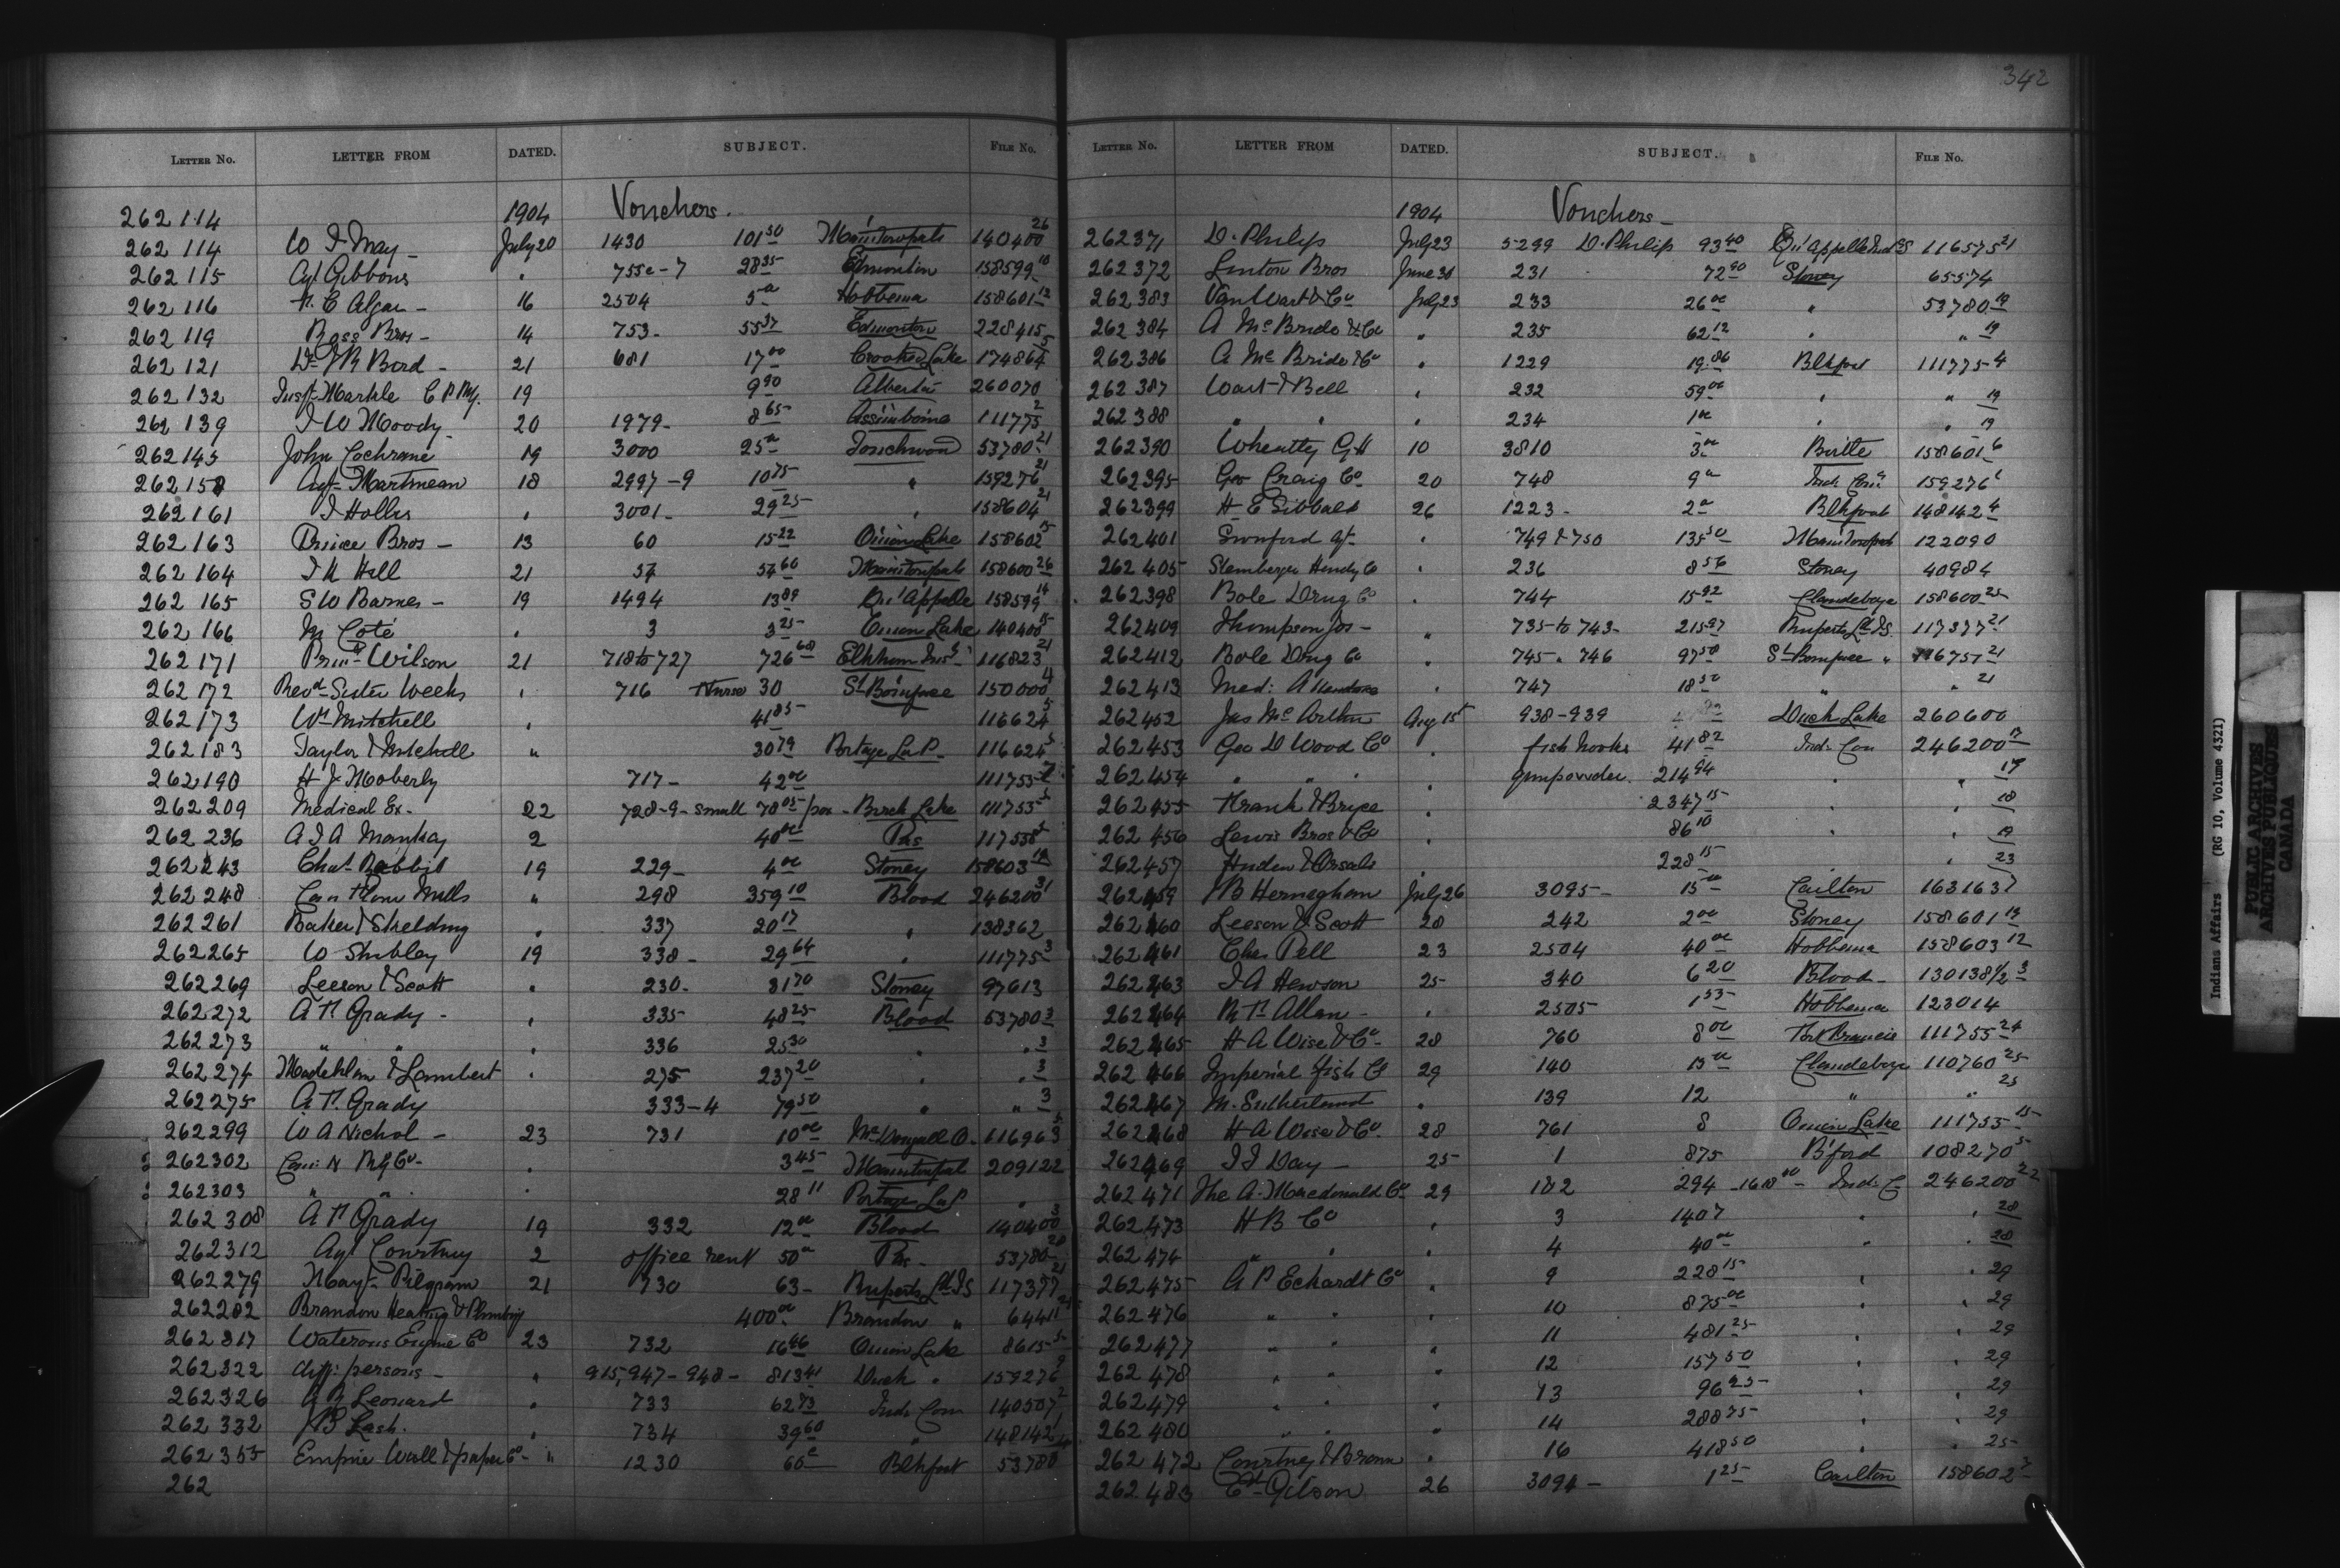 342
LETTER NO. LETTER FROM DATED. SUBJECT. FILE NO.
262114 1904 Vouchers.
262 114 W I May July 20 1430 101 50 Manitowpah 140400 26
262 115 Agt Gibbons " 755c-7 28 35 Edmonton 158599 10
262 116 16 2504 5 00 Hobbema 158601 12
262 119 Ross Bros - 14 753 - 55 37 Edmonton 228415
262 121 21 681 17 00 Crooked Lake 174864 5
262 132 Insp Markle C P Ry. 19 9 90 Alberta 260070
262 139 I W Moody 20 1979 - 8 65 Assiniboine 111775 2
262 145 John Cochrane 19 3000 25 00 Touchwood 53780 21
262 158 Agt Martineau 18 2997-9 10 75 " 159276 21
262 161 I Hollis " 3001 - 29 25 " 158604 21
262 163 Bros - 13 60 15 22 Onion Lake 158602 15
262 164 Hall 21 57 60 Manitowpah 158600 26
262 165 S W Barnes - 19 1494 13 89 Qu'Appelle 158599 14
262 166 Coté " 3 3 25 Onion Lake 140400 15
262 171 Prin Wilson 21 718 to 727 726 68 Elkhorn Ins 116823 21
262 172 Revd Sister Weeks " 716 Nurse 30 St Boniface 150000 4
262 173 Wm Mitchell " 41 85 116624 5
262 183 Taylor & Mitchell " 30 79 Portage La P. 116624 5
262 190 H J Moberly 717 - 42 00 111755
262 209 Medical Ex - 22 728-9 - small 78 05 /pox - Birch Lake 111755
262 236 2 40 00 Pas 117558
262 243 Chas Rabbit 19 229 - 4 00 Stoney 158603 19
262 248 Mills " 298 359 10 Blood 246200 31
262 261 Baker & Shelding " 337 20 17 " 138362
262 265 W Stubley 19 338 - 29 64 " 111775 3
262 269 Leeson & Scott " 230 - 81 70 Stoney 97613
262 272 Grady - " 335 48 25 Blood 53780 3
262 273 " " " 336 25 30 " " 3
262 274 & Lambert " 275 237 20 " " 3
262 275 Grady 333-4 79 50 " " 3
262 299 W A Nichol - 23 731 10 00 McDougall O. 116963
262302 Can: N Ry Co - " 3 45 Manitowpah 209122
262303 " " " 28 11 Portage La P "
262 308 Grady 19 332 12 00 Blood 140400 3
262312 Agt Courtney 2 office rent 50 00 Pas - 53780 20
262 279 Pilgrim 21 730 63 - Ruperts Ld IS 117377 21
262282 Brandon Heating & Plumbing 400 00 Brandon " 64411
262 317 Waterous Engine Co 23 732 16 46 Onion Lake 8615
262 322 diff: persons - " 915, 947 - 948 - 813 41 Duck " 159276
262 326 Leonard " 733 62 73 Indn Com 140507 2
262 332 Lash. " 734 39 60 " 148142
262 355 Empire Wall & paper Co - " 1230 60 c Blkfoot 53780
262
LETTER NO. LETTER FROM DATED. SUBJECT. FILE NO.
1904 Vouchers -
262371 D. Philip July 23 5299 D. Philip 93 40 Qu'Appelle Ind IS 116575 21
262372 Linton Bros June 30 231 72 90 Stoney 65574
262383 VanWart & Co July 23 233 26 00 " 53780 19
262 384 A McBride & Co " 235 62 12 " " 19
262386 A McBride & Co " 1229 19 86 Blkfoot 111775-4
262387 Wart & Bell " 232 59 00 " " 19
262388 " " " 234 1 00 " " 19
262390 Wheatly G H 10 3810 3 00 Birtle 158601 6
262395 Geo Craig Co 20 748 9 00 Ind. Com 159276
262399 H E Sibbald 26 1223 - 2 00 Blkfoot 148142 4
262401 Agt. " 749 & 750 135 50 Manitowpah 122090
262 405 Hendy Co " 236 8 56 Stoney 40984
262398 Bole Drug Co " 744 15 92 Clandeboye 158600 25
262409 Thompson Jos - " 735 to 743 - 215 97 Ruperts Ld IS. 117377 21
262412 Bole Drug Co " 745 . 746 97 50 St Boniface " 116751 21
262413 Med: Attendance " 747 18 50 " " 21
262452 Jas McArthur Aug 15 938-939 Duck Lake 260600
262453 Geo D Wood Co " fish hooks 41 82 Indn Com 246200 17
262454 " " " " gunpowder. 214 94 " " 17
262455 & Bryce " 2347 15 " " 18
262 456 Lewis Bros & Co " 86 10 " " 19
262457 " 228 15 " 23
262459 July 26 3095 - 15 00 Carlton 163163 7
262460 Leeson & Scott 28 242 2 00 Stoney 158601 19
262461 Chas Pell 23 2504 40 00 Hobbema 158603 12
262463 I A Hewson 25 340 6 20 Blood - 130138 1/2 3
262464 Allan - " 2505 1 53 Hobbema 123014
262465 H A Wise & Co - 28 760 8 00 Ft Francis 111755 24
262 466 Imperial Fish Co 29 140 15 00 Clandeboye 110760 25
262467 M. Sutherland " 139 12 " " 25
262468 H A Wise & Co. 28 761 8 Onion Lake 111755 15
262469 Day - 25 1 875 B'ford 108270 5
262471 The A. Macdonald Co 29 182 294 - 1618 00 - Ind: C 246200 22
262473 H B Co " 3 1407 " " 28
262474 " " " 4 40 00 " " 28
262475 Eckardt Co " 9 228 15 " " 29
262476 " " " 10 875 00 " " 29
262477 " " " 11 481 25 " 29
262478 " " " 12 157 50 " 29
262479 " " " 13 96 25 " 29
262480 " " " 14 288 75 " 29
262472 Courtney & Brown " 16 418 50 " " 25
262483 Gilson 26 3094 - 1 25 Carlton 158602 7
Indians Affairs (RG 10, Volume 4321)
PUBLIC ARCHIVES
ARCHIVES PUBLIQUES
CANADA